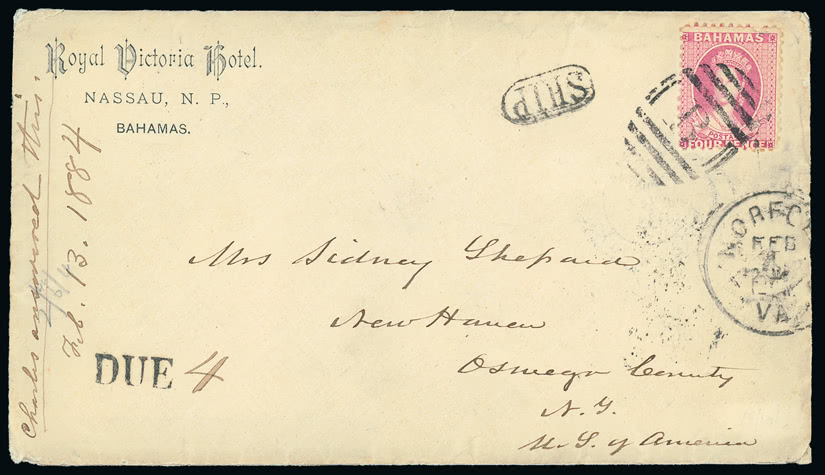 Royal Victoria Hotel.
NASSAU, N. P.,
BAHAMAS.
SHIP
BAHAMAS
POSTAGE
FOUR PENCE
B
NORFOLK
FEB
VA
Mrs Sidney Shepard
New Haven
Oswego County
N. Y.
U. S. of America
DUE 4
Charles answered this.
Feb. 13. 1884